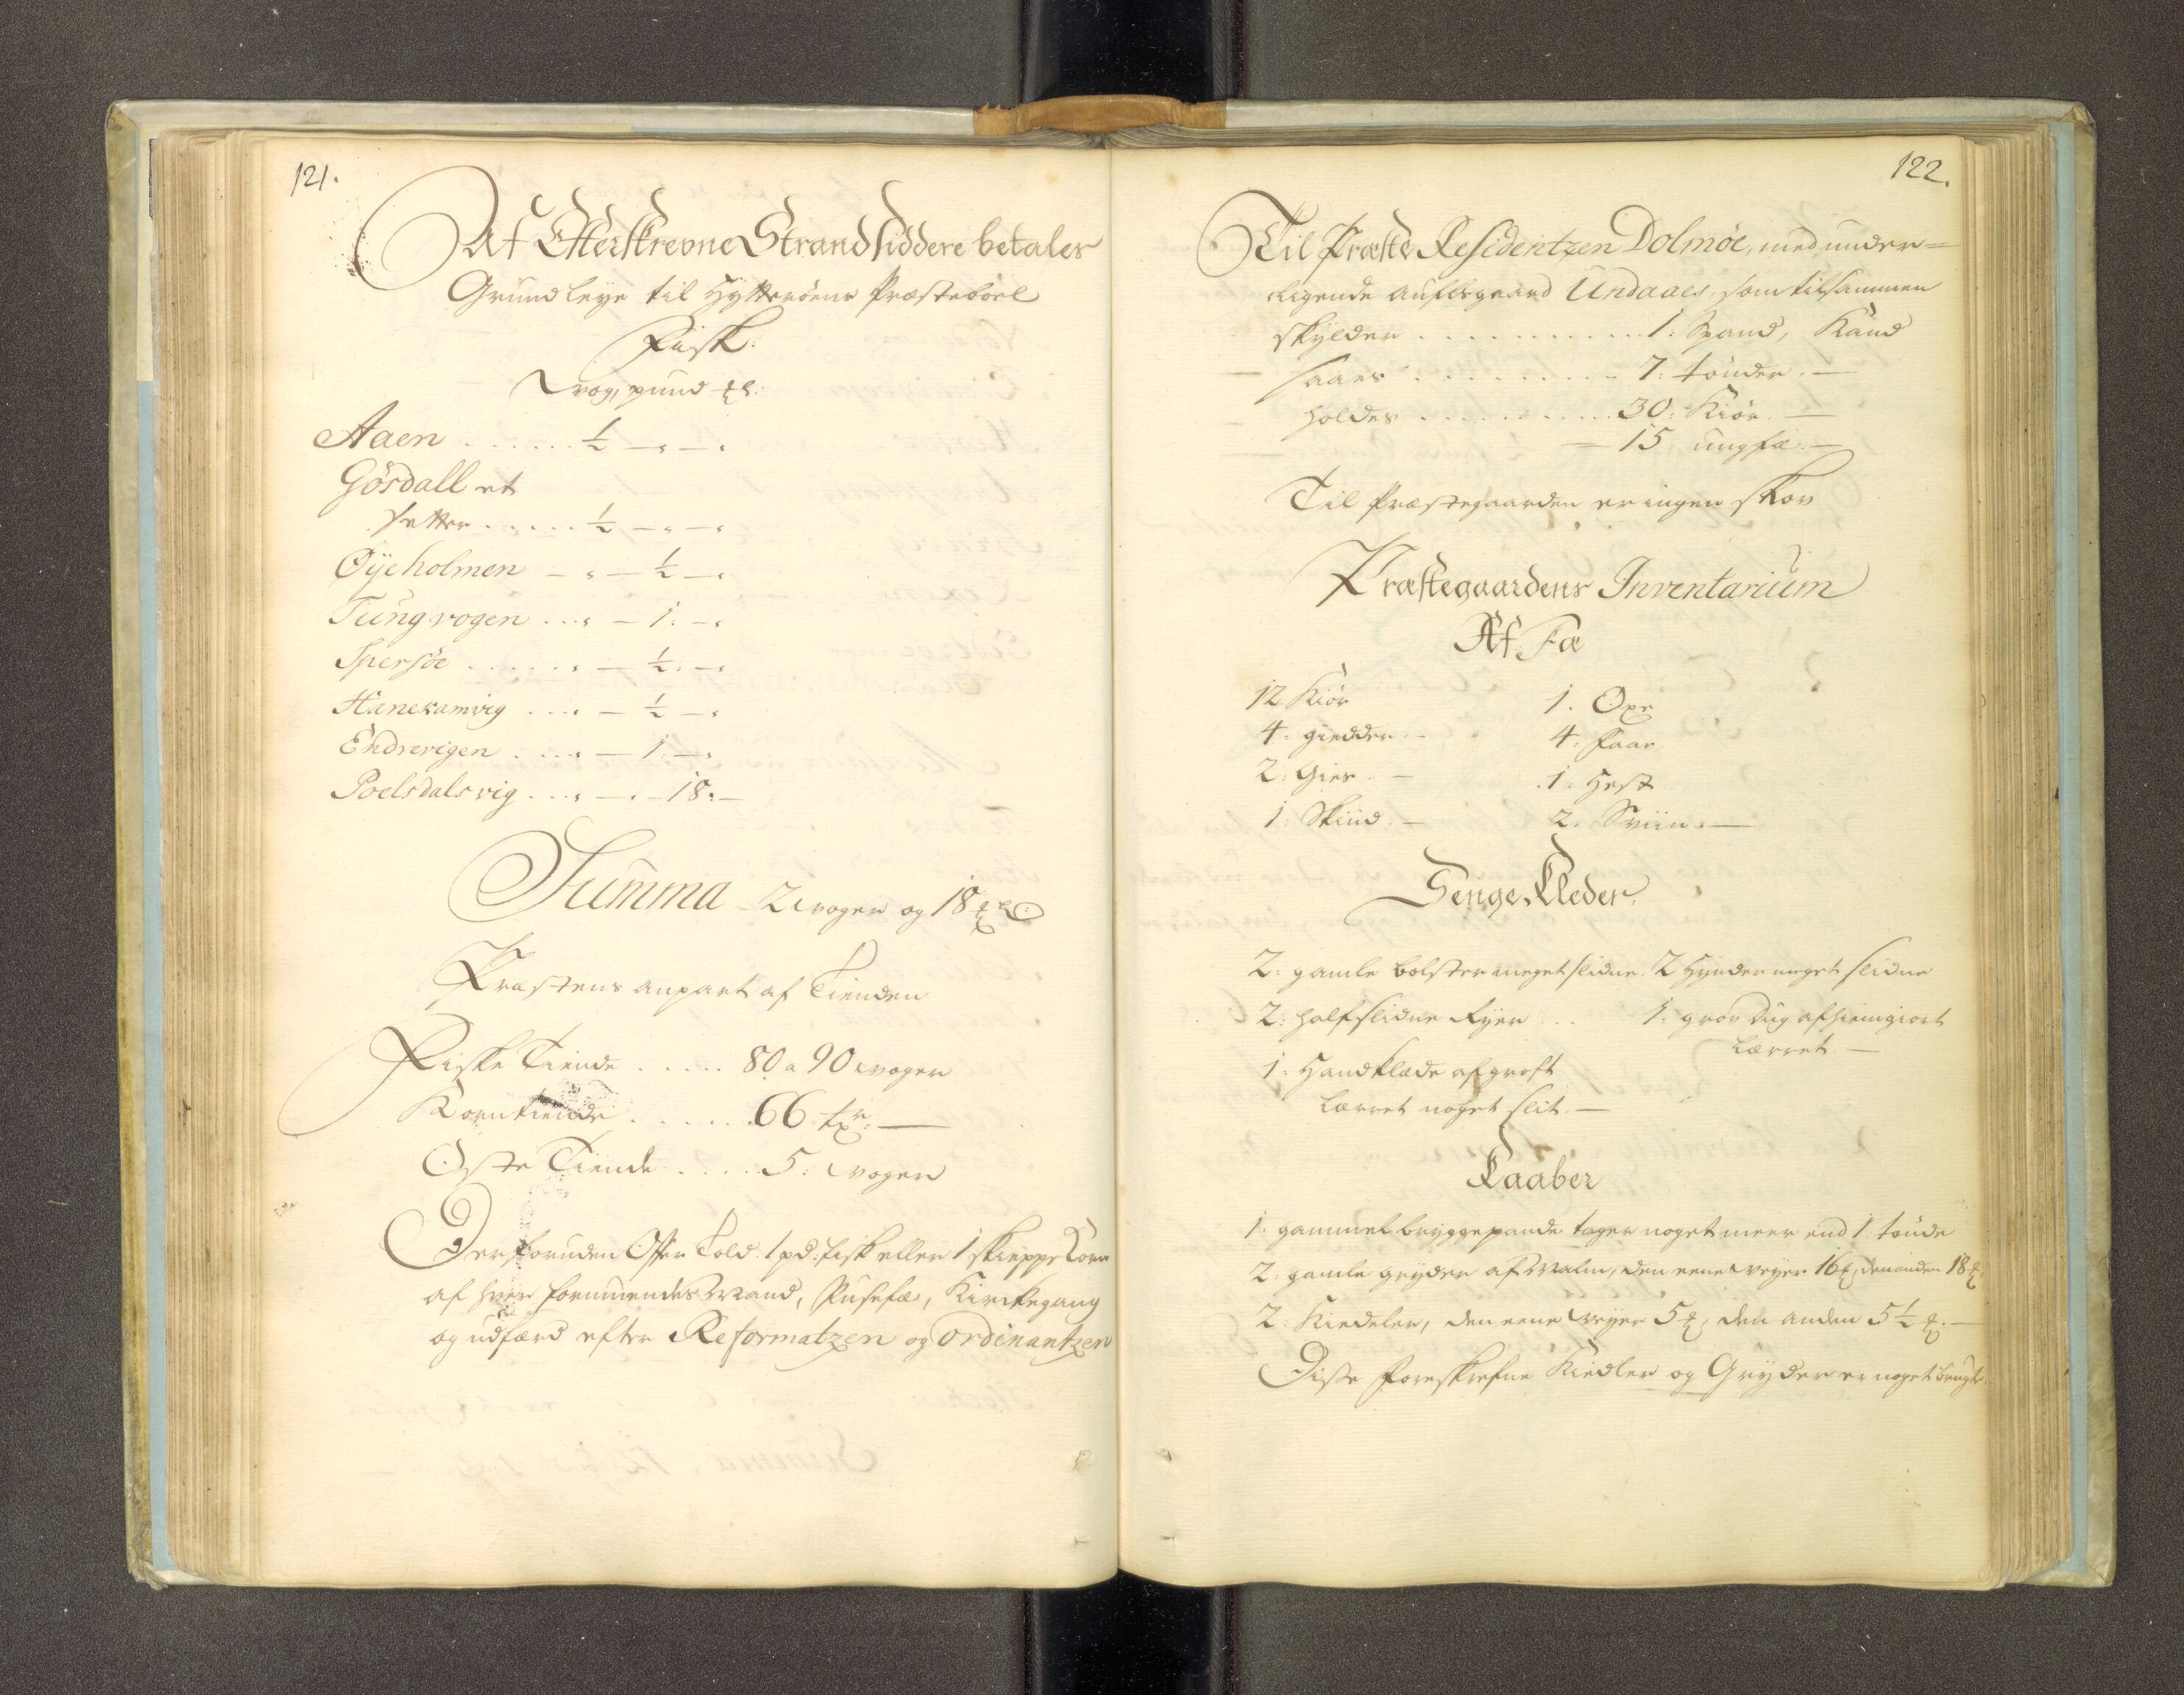 121.
Af Efterskrevne Strandsiddere betales
Grundleye til Hytterøens Præsteboel
Fisk.
vog, pund ℔:
Aaen . . . . . . ½ – „ – „
Gösdall et
Setter . . . . . ½ – „ – „
Øÿeholmen – „ – ½ – „
Tungvogen . . . „ – 1: – „
Spersöe . . . . . . „ – ½. – „
Hanekamvig . . . „ – ½ – „
Endrevigen . . . . „ – 1 – „
Poelsdalsvig . . . „ – „ – 18: –
Summa – 2 voger og 18 ℔
Præstens anpart af Tienden
Fiske Tiende . . . . . 80 a 90 voger
Korntiende . . . . . . 66 tr: —
Oste Tiende . . . . 5: voger
Derforuden Offer Told. 1 pd: fisk eller 1 skieppe Korn
af hver formuendes Mand, Pusefæ, Kirkegang
og udfærd efter Reformatzen og Ordinantzen
122.
Til Præste Residentzen Dolmöe, med under=
liggende aufelsgaard Undaaes, som tilsammen
skÿlder . . . . . . . . . . 1: Spand, Kand
saaes . . . . . . . . . 7: tönder. —
holdes . . . . . . . . . 30: Kiör —
– 15 ungfæ. —
Til Præstegaarden er ingen skov
Præstegaardens Inventarium
Af Fæ
12 Kiör 1. Oxe
4. giedder – 4: faar
2: Gies. – 1. Hest
1: Skiud. – 2. Sviin. —
Senge Kleder.
2: gamle bolster meget slidne. 2 Hÿnder meget slidne
2: halfslidne Rÿer . . . 1. grov Dug af hiemgiort
lærret —
1: Handklæde af groft
lærret noget slit. —
Kaaber
1. gammel brÿggepande tager noget meer end 1 tönde
2: gamle grÿder af Malm, den eene veyer 16 ℔, den anden 18 ℔:
2: Kiedeler, den eene veyer 5 ℔, den anden 5½ ℔. —
Disse foreskrefne Kiedler og Grÿder er noget brugte